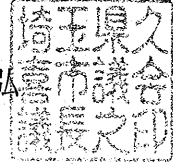 埼玉県久
喜市議会
議長之印